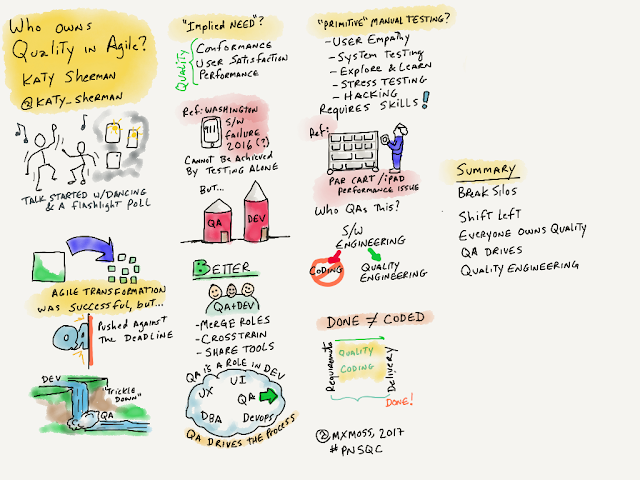 Who owns
Quality in Agile?
Katy Sherman
@katy_sherman
Talk started w/dancing
& a flashlight poll
Agile transformation
was successful, but...
QA
Pushed against
the deadline
DEV
"Trickle
Down"
QA
"Implied NEED"?
QUALITY
Conformance
User Satisfaction
Performance
Ref: Washington
911
S/W
failure
2016 (?)
Cannot be achieved
by testing alone
But...
QA
DEV
Better
QA+DEV
-Merge roles
-Crosstrain
-Share tools
QA is a role in Dev
UI
UX
QA
DBA
DevOps
QA drives the process
"Primitive" Manual Testing?
-User Empathy
-System Testing
-Explore & Learn
-Stress Testing
-Hacking
Requires Skills!
Ref:
Par Cart / iPad
performance issue
Who QAs this?
S/W
Engineering
Coding
Quality
Engineering
Done ≠ Coded
Requirements
Quality
Coding
Delivery
Done!
@mxmoss, 2017
#PNSQC
Summary
Break Silos
Shift Left
Everyone owns Quality
QA Drives
Quality Engineering